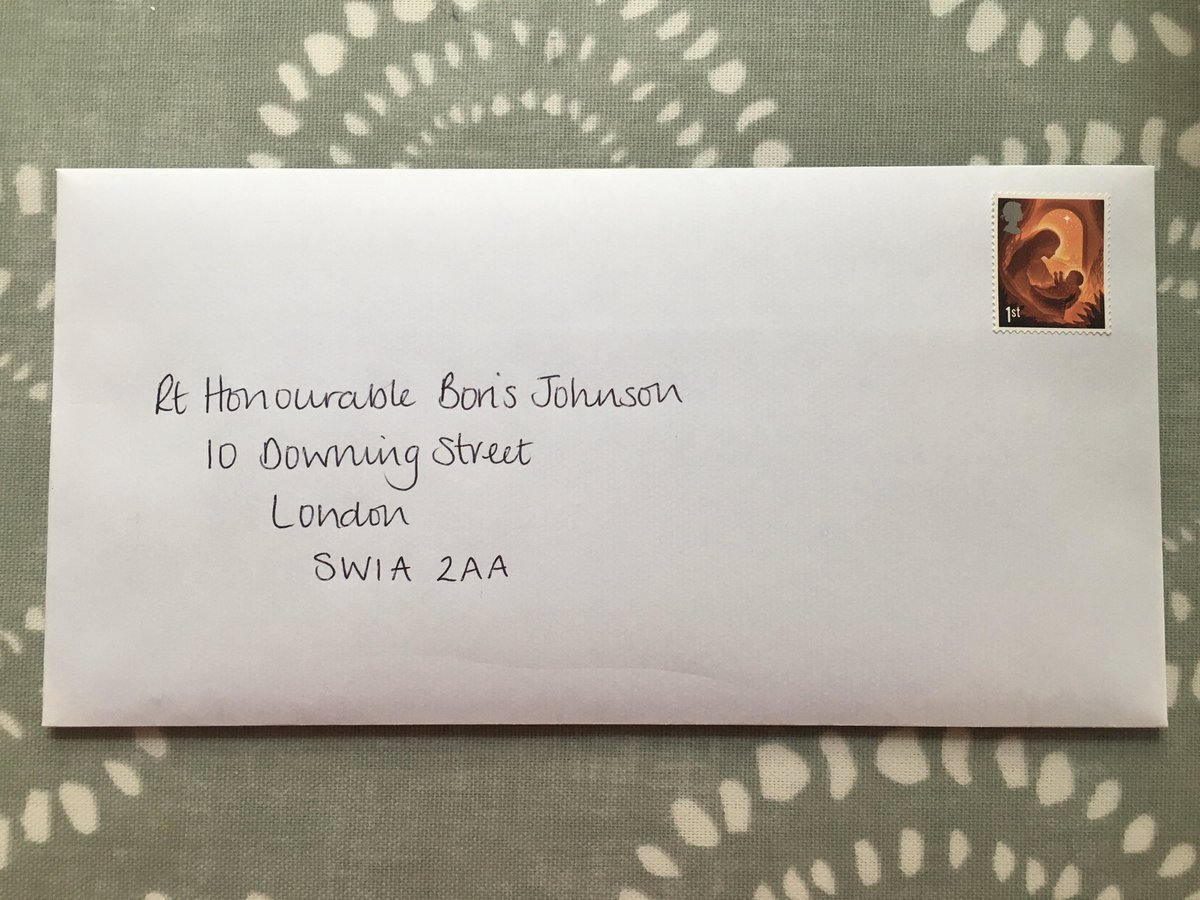 1st
Rt Honourable Boris Johnson
10 Downing Street
London
SW1A 2AA